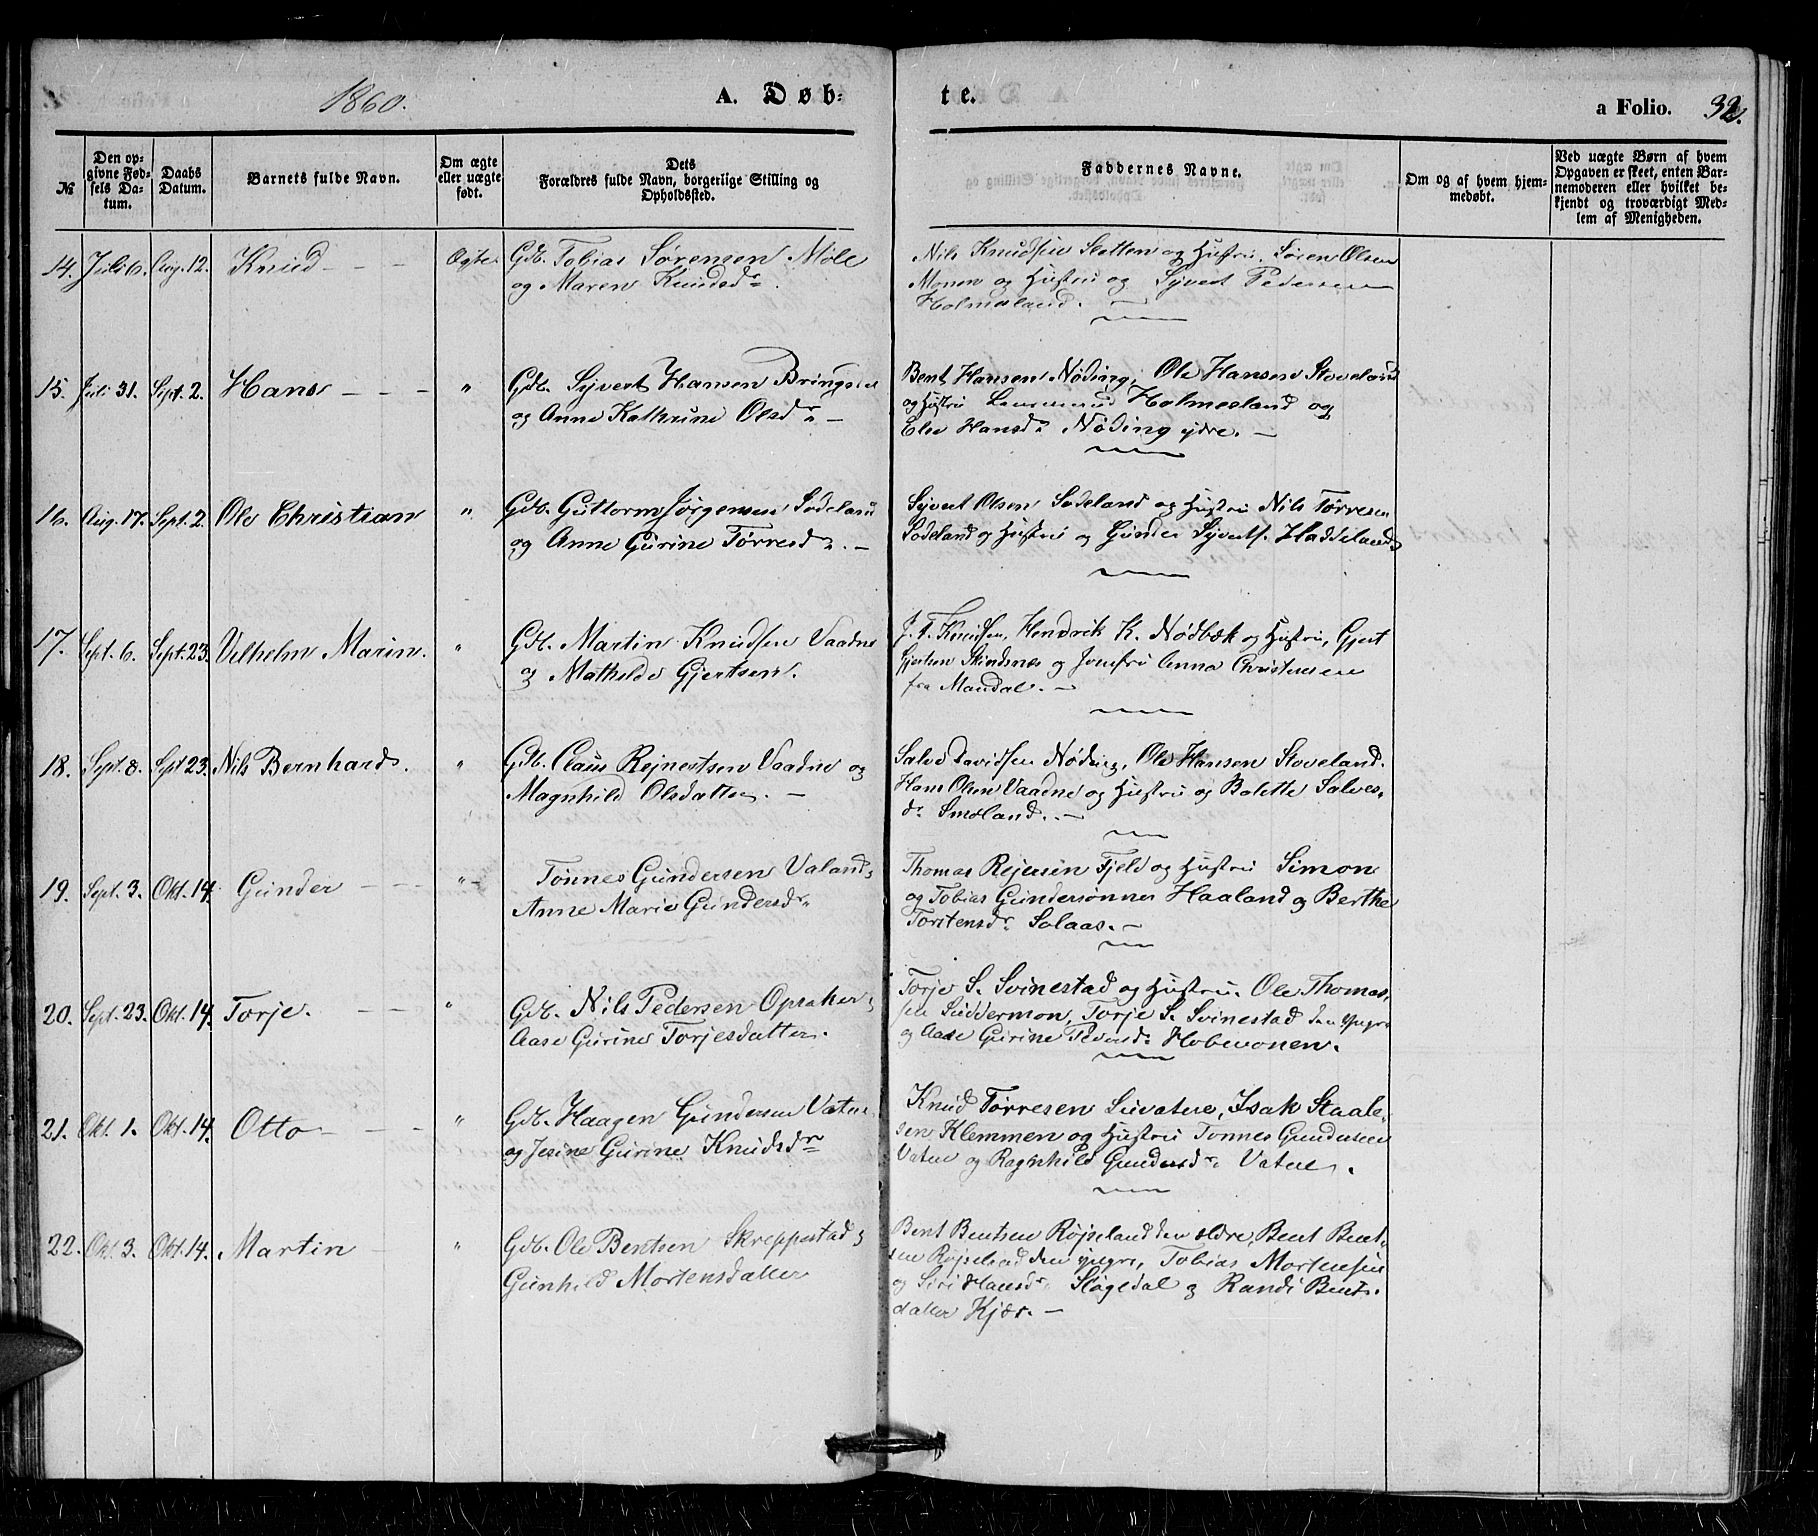 1860.
A. Døb-
te.
a Folio. 32.
№
Den op-
givne Fød-
sels Da-
tum.
Daabs
Datum.
Barnets fulde Navn.
Om ægte
eller uægte
født.
Dets
Forældres fulde Navn, borgerlige Stilling og
Opholdssted.
Faddernes Navne.
Om og af hvem hjem-
medøbt.
Ved uægte Børn af hvem
Opgaven er skeet, enten Bar-
nemoderen eller hvilket be-
kjendt og troværdigt Med-
lem af Menigheden.
14. Juli 6. Aug. 12. Knud Ægte Gdb. Tobias Sørensen Møll
og Maren Knudsdr.
Nils Knudsen Sletten og Hustru, Søren Olsen
Monen og Hustru og Syvert Pedersen
Holmesland.
15. Juli 31. Sept. 2. Hans " Gdb. Syvert Hansen Bringsæl
og Anne Kathrine Olsdr.
Bent Hansen Nøding, Ole Hansen Stoveland
og Hustru Holmesland og
Else Hansdr. Nøding ydre.
16. Aug. 17. Sept. 2 Ole Christian " Gdb. Guttorm Jørgensen Lødeland
og Anne Gurine Tørresdr.
Syvert Olsen Lødeland og Hustru Nils Tørresen
Lødeland og Hustru og Gunder Syverts. Haddeland
17. Sept. 6. Sept. 23. Vilhelm Marin. " Gdb. Martin Knudsen Vaadne
og Mathilde Gjertsen.
J. T. Knudsen, Hendrik K. Nødbæk og Hustru, Gjert
Gjertsen Skindsnes og Jomfru Anna Christensen
fra Mandal.
18. Sept. 8. Sept 23. Nils Bernhard. " Gdb. Claus Rejnertsen Vaadne og
Magnhild Olsdatter.
Salve Davidsen Nøding, Ole Hansen Stoveland.
Hans Olsen Vaadne og Hustru og Bolette Salves-
dr. Smoland.
19. Sept. 3. Okt. 14. Gunder " Tønnes Gundersen Valand
Anne Marie Gundersdr.
Thomas Rejersen Fjeld og Hustru Simon
og Tobias Gundersønner Haaland og Berthe
Torstensdr. Solaas.
20. Sept. 23. Okt. 14. Torje. " Gdb. Nils Pedersen Opsaker
Aase Gurine Torjesdatter.
Torje S. Svinestad og Hustru. Ole Thomas-
sen Suddermon, Torje S. Svinestad den yngre
og Aase Gurine Pedersdr. Hobevonen.
21. Okt. 1. Okt. 14. Otto " Gdb. Haagen Gundersen Vatne
og Jesine Gurine Knudsdr
Knud Tørresen Livatne, Isak Staale-
sen Klemmen og Hustru Tønnes Gundersen
Vatne og Ragnhild Gundersdr. Vatne.
22. Okt. 3. Okt. 14. Martin " Gdb. Ole Bentsen Skreppestad og
Gunhild Mortensdatter
Bent Bentsen Røjseland den ældre, Bent Bent-
sen Røjseland den yngre, Tobias Mortensen
og Siri Hansdr. Sløgedal og Randi Bents-
datter Kjær.